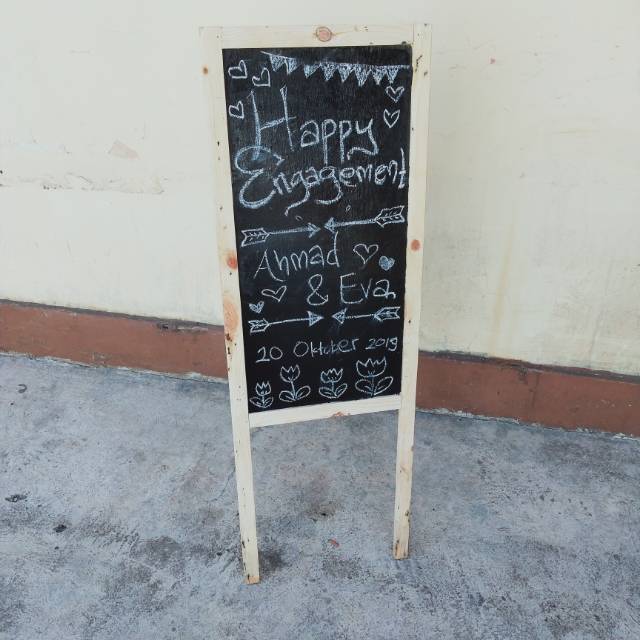 Happy
Engagement
Ahmad
& Eva
10 Oktober 2019